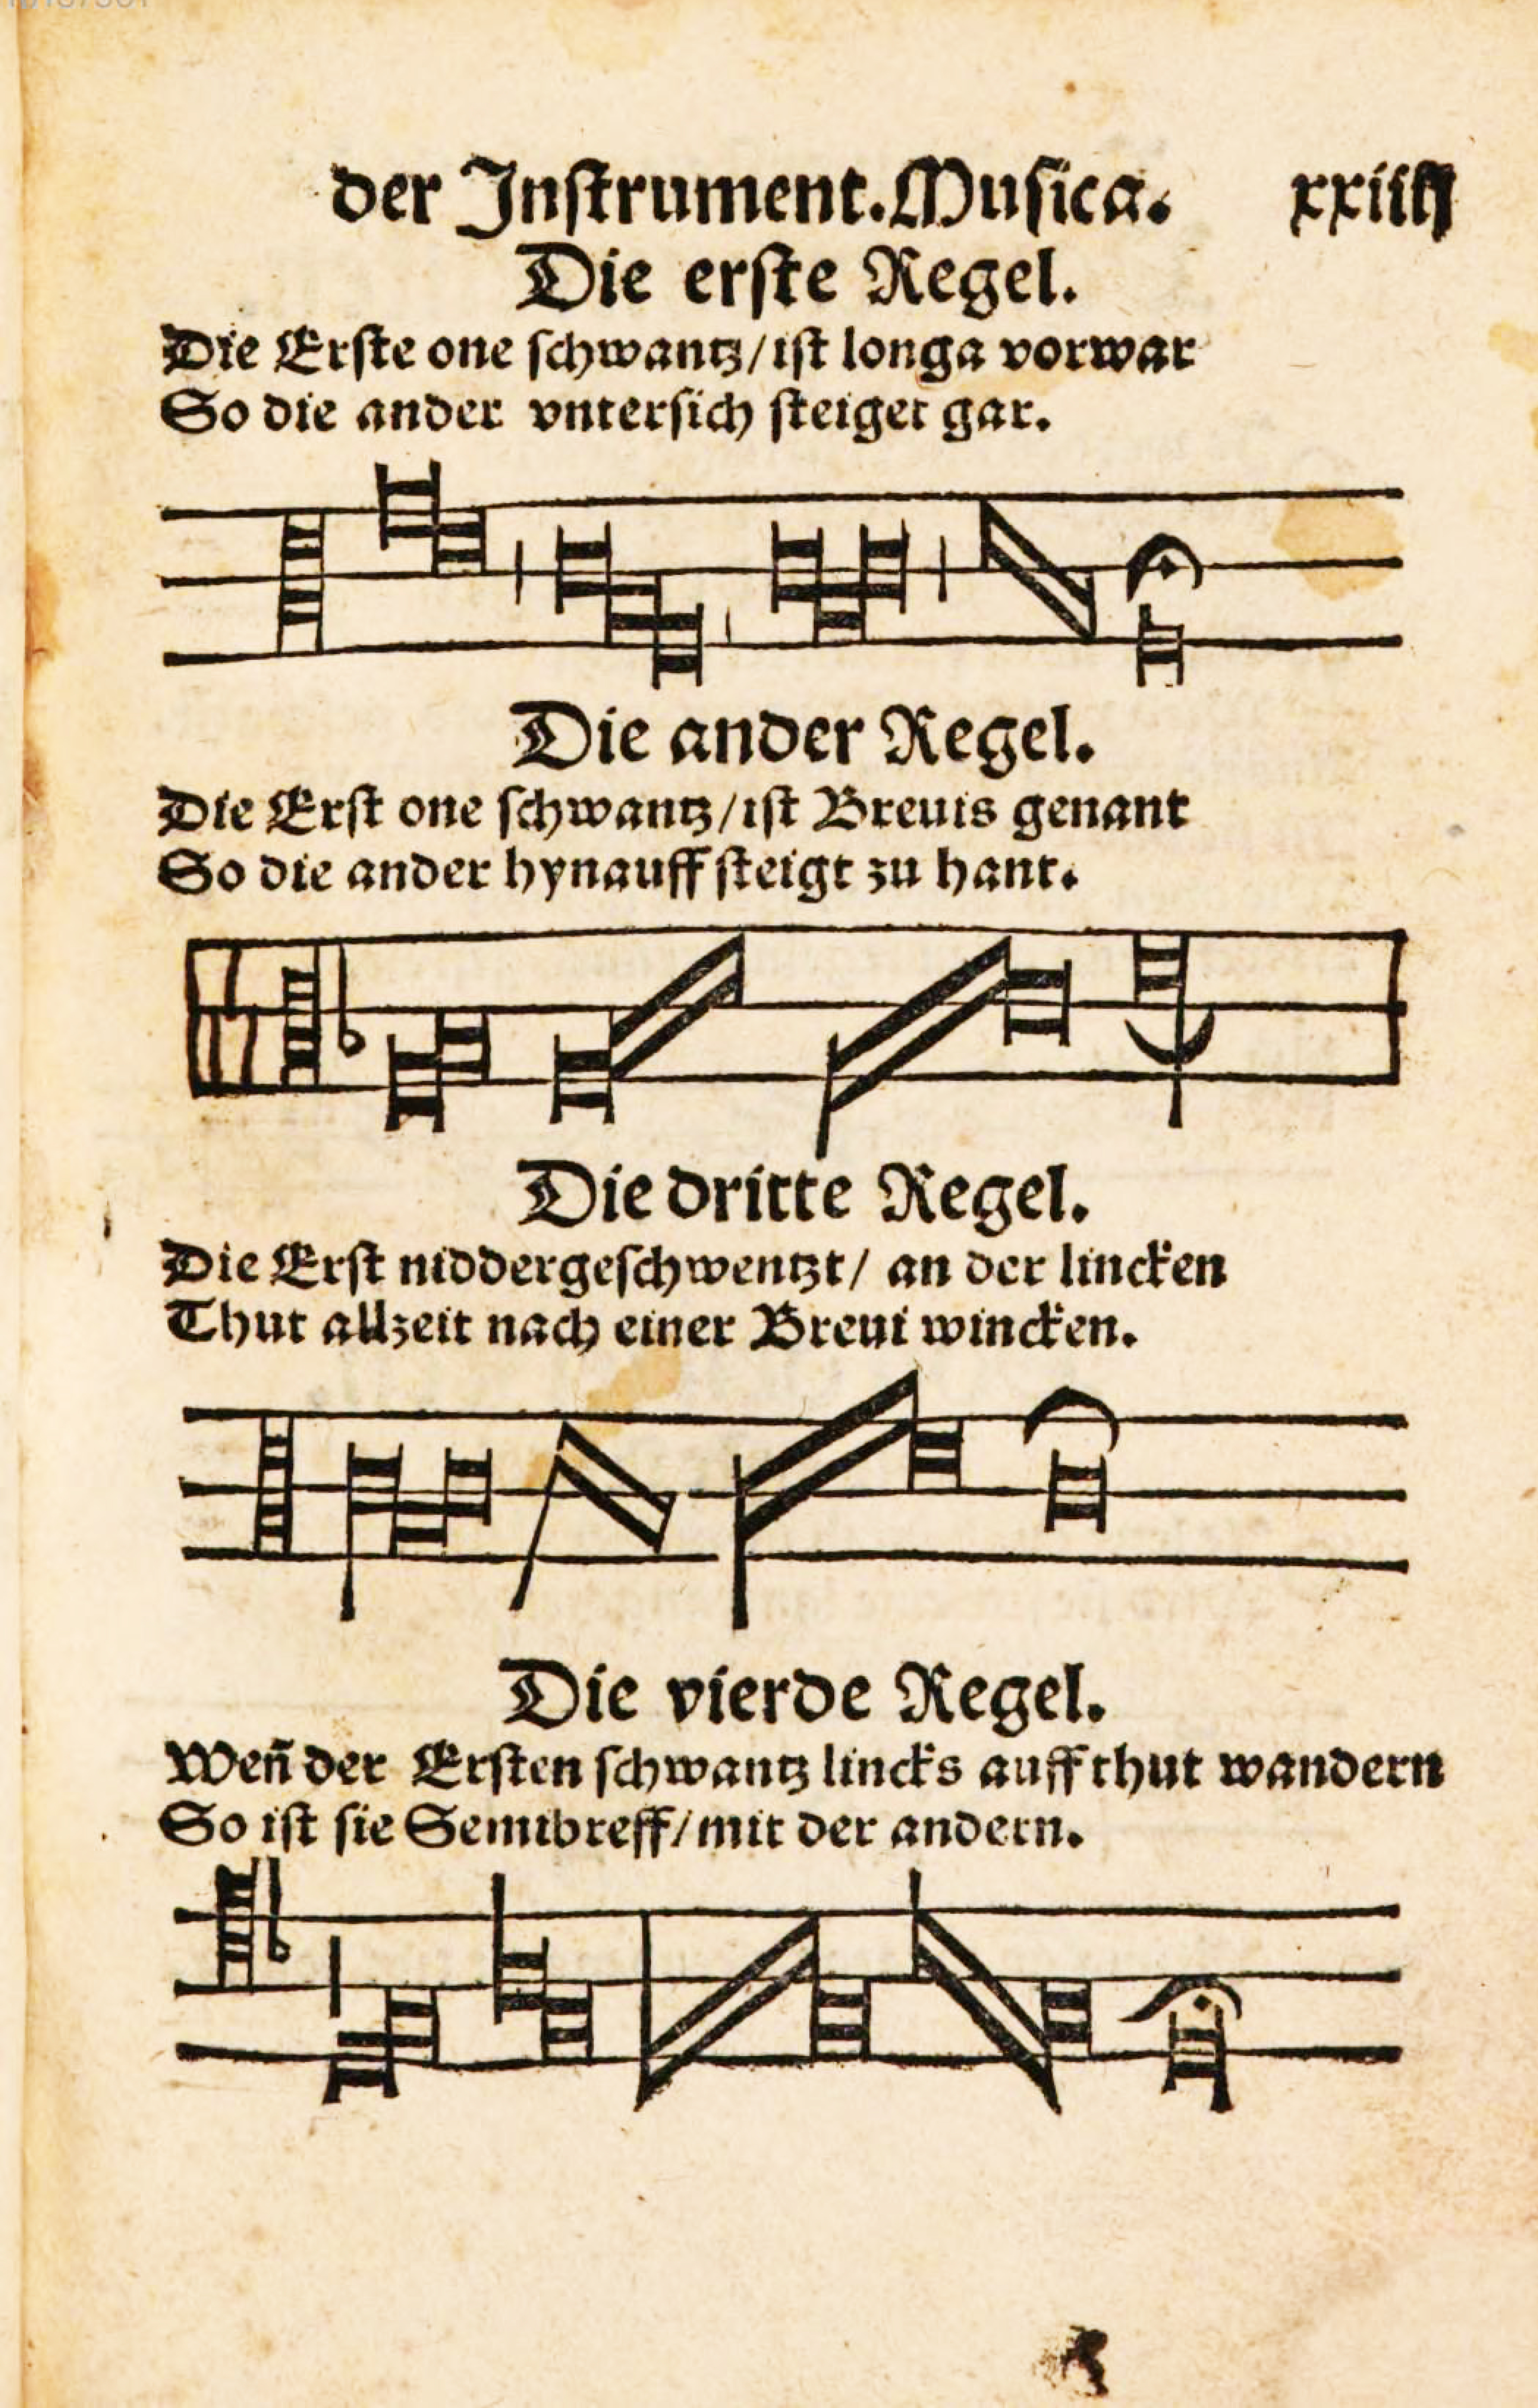 der Instrument.Musica. xxiiij
Die erste Regel.
Die Erste one schwantz/ist longa vorwar
So die ander vntersich steiget gar.
Die ander Regel.
Die Erst one schwantz/ist Breuis genant
So die ander hynauff steigt zu hant.
Die dritte Regel.
Die Erst niddergeschwentzt/ an der lincken
Thut allzeit nach einer Breui wincken.
Die vierde Regel.
Weñ der Ersten schwantz lincks auff thut wandern
So ist sie Semibreff/mit der andern.